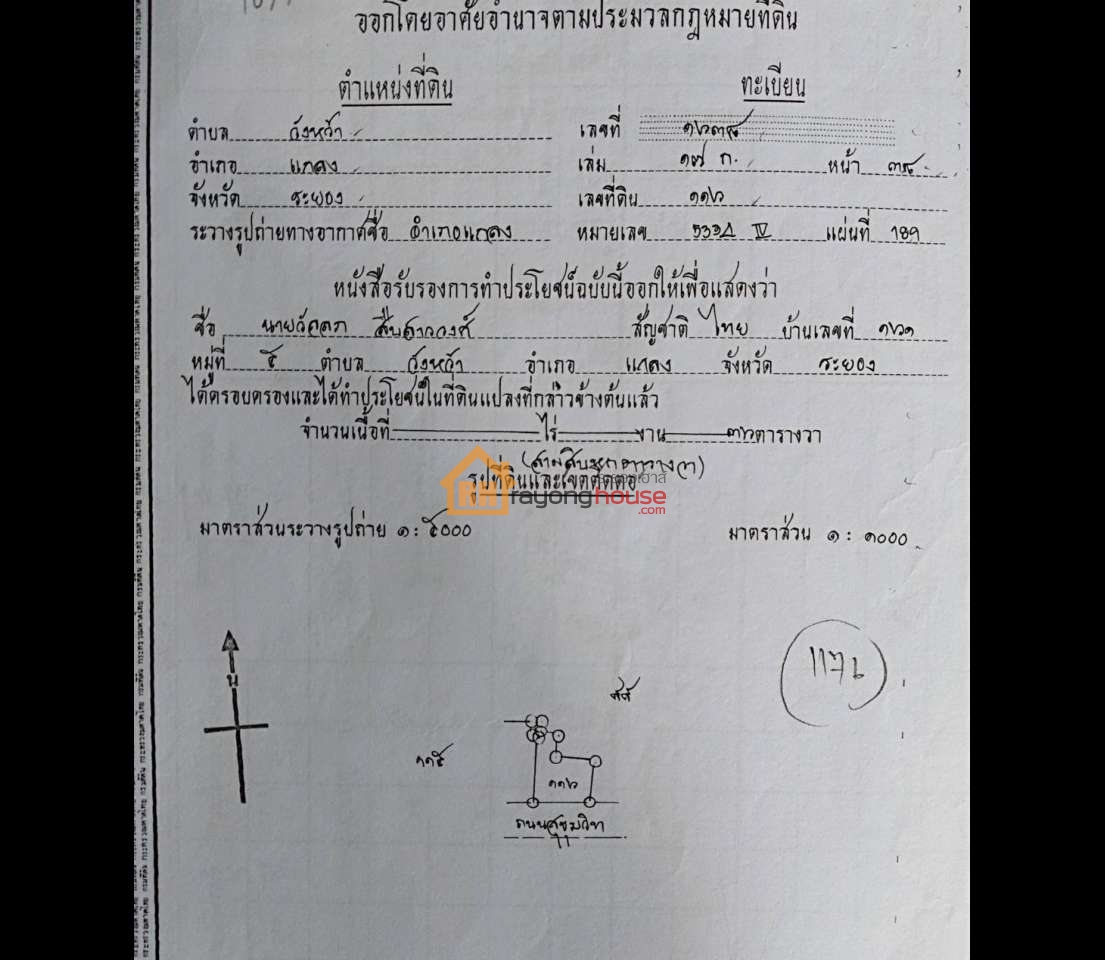 ออกโดยอาศัยอำนาจตามประมวลกฎหมายที่ดิน
ตำแหน่งที่ดิน ทะเบียน
ตำบล วังหว้า เลขที่ ๑๖๓๘
อำเภอ แกลง เล่ม ๑๗ ก. หน้า ๓๘
จังหวัด ระยอง เลขที่ดิน ๑๑๖
ระวางรูปถ่ายทางอากาศชื่อ อำเภอแกลง หมายเลข 5334 IV แผ่นที่ 189
หนังสือรับรองการทำประโยชน์ฉบับนี้ออกให้เพื่อแสดงว่า
ชื่อ สัญชาติ ไทย บ้านเลขที่ ๑๖๑
หมู่ที่ ๕ ตำบล วังหว้า อำเภอ แกลง จังหวัด ระยอง
ได้ครอบครองและได้ทำประโยชน์ในที่ดินแปลงที่กล่าวข้างต้นแล้ว
จำนวนเนื้อที่ ไร่ งาน ๓๖ ตารางวา
(สามสิบหกตารางวา)
รูปที่ดินและเขตติดต่อ
rayonghouse
.com
มาตราส่วนระวางรูปถ่าย ๑ : ๕๐๐๐ มาตราส่วน ๑ : ๑๐๐๐
น
๑๑๕
๑๑๖
ถนนสุขุมวิท